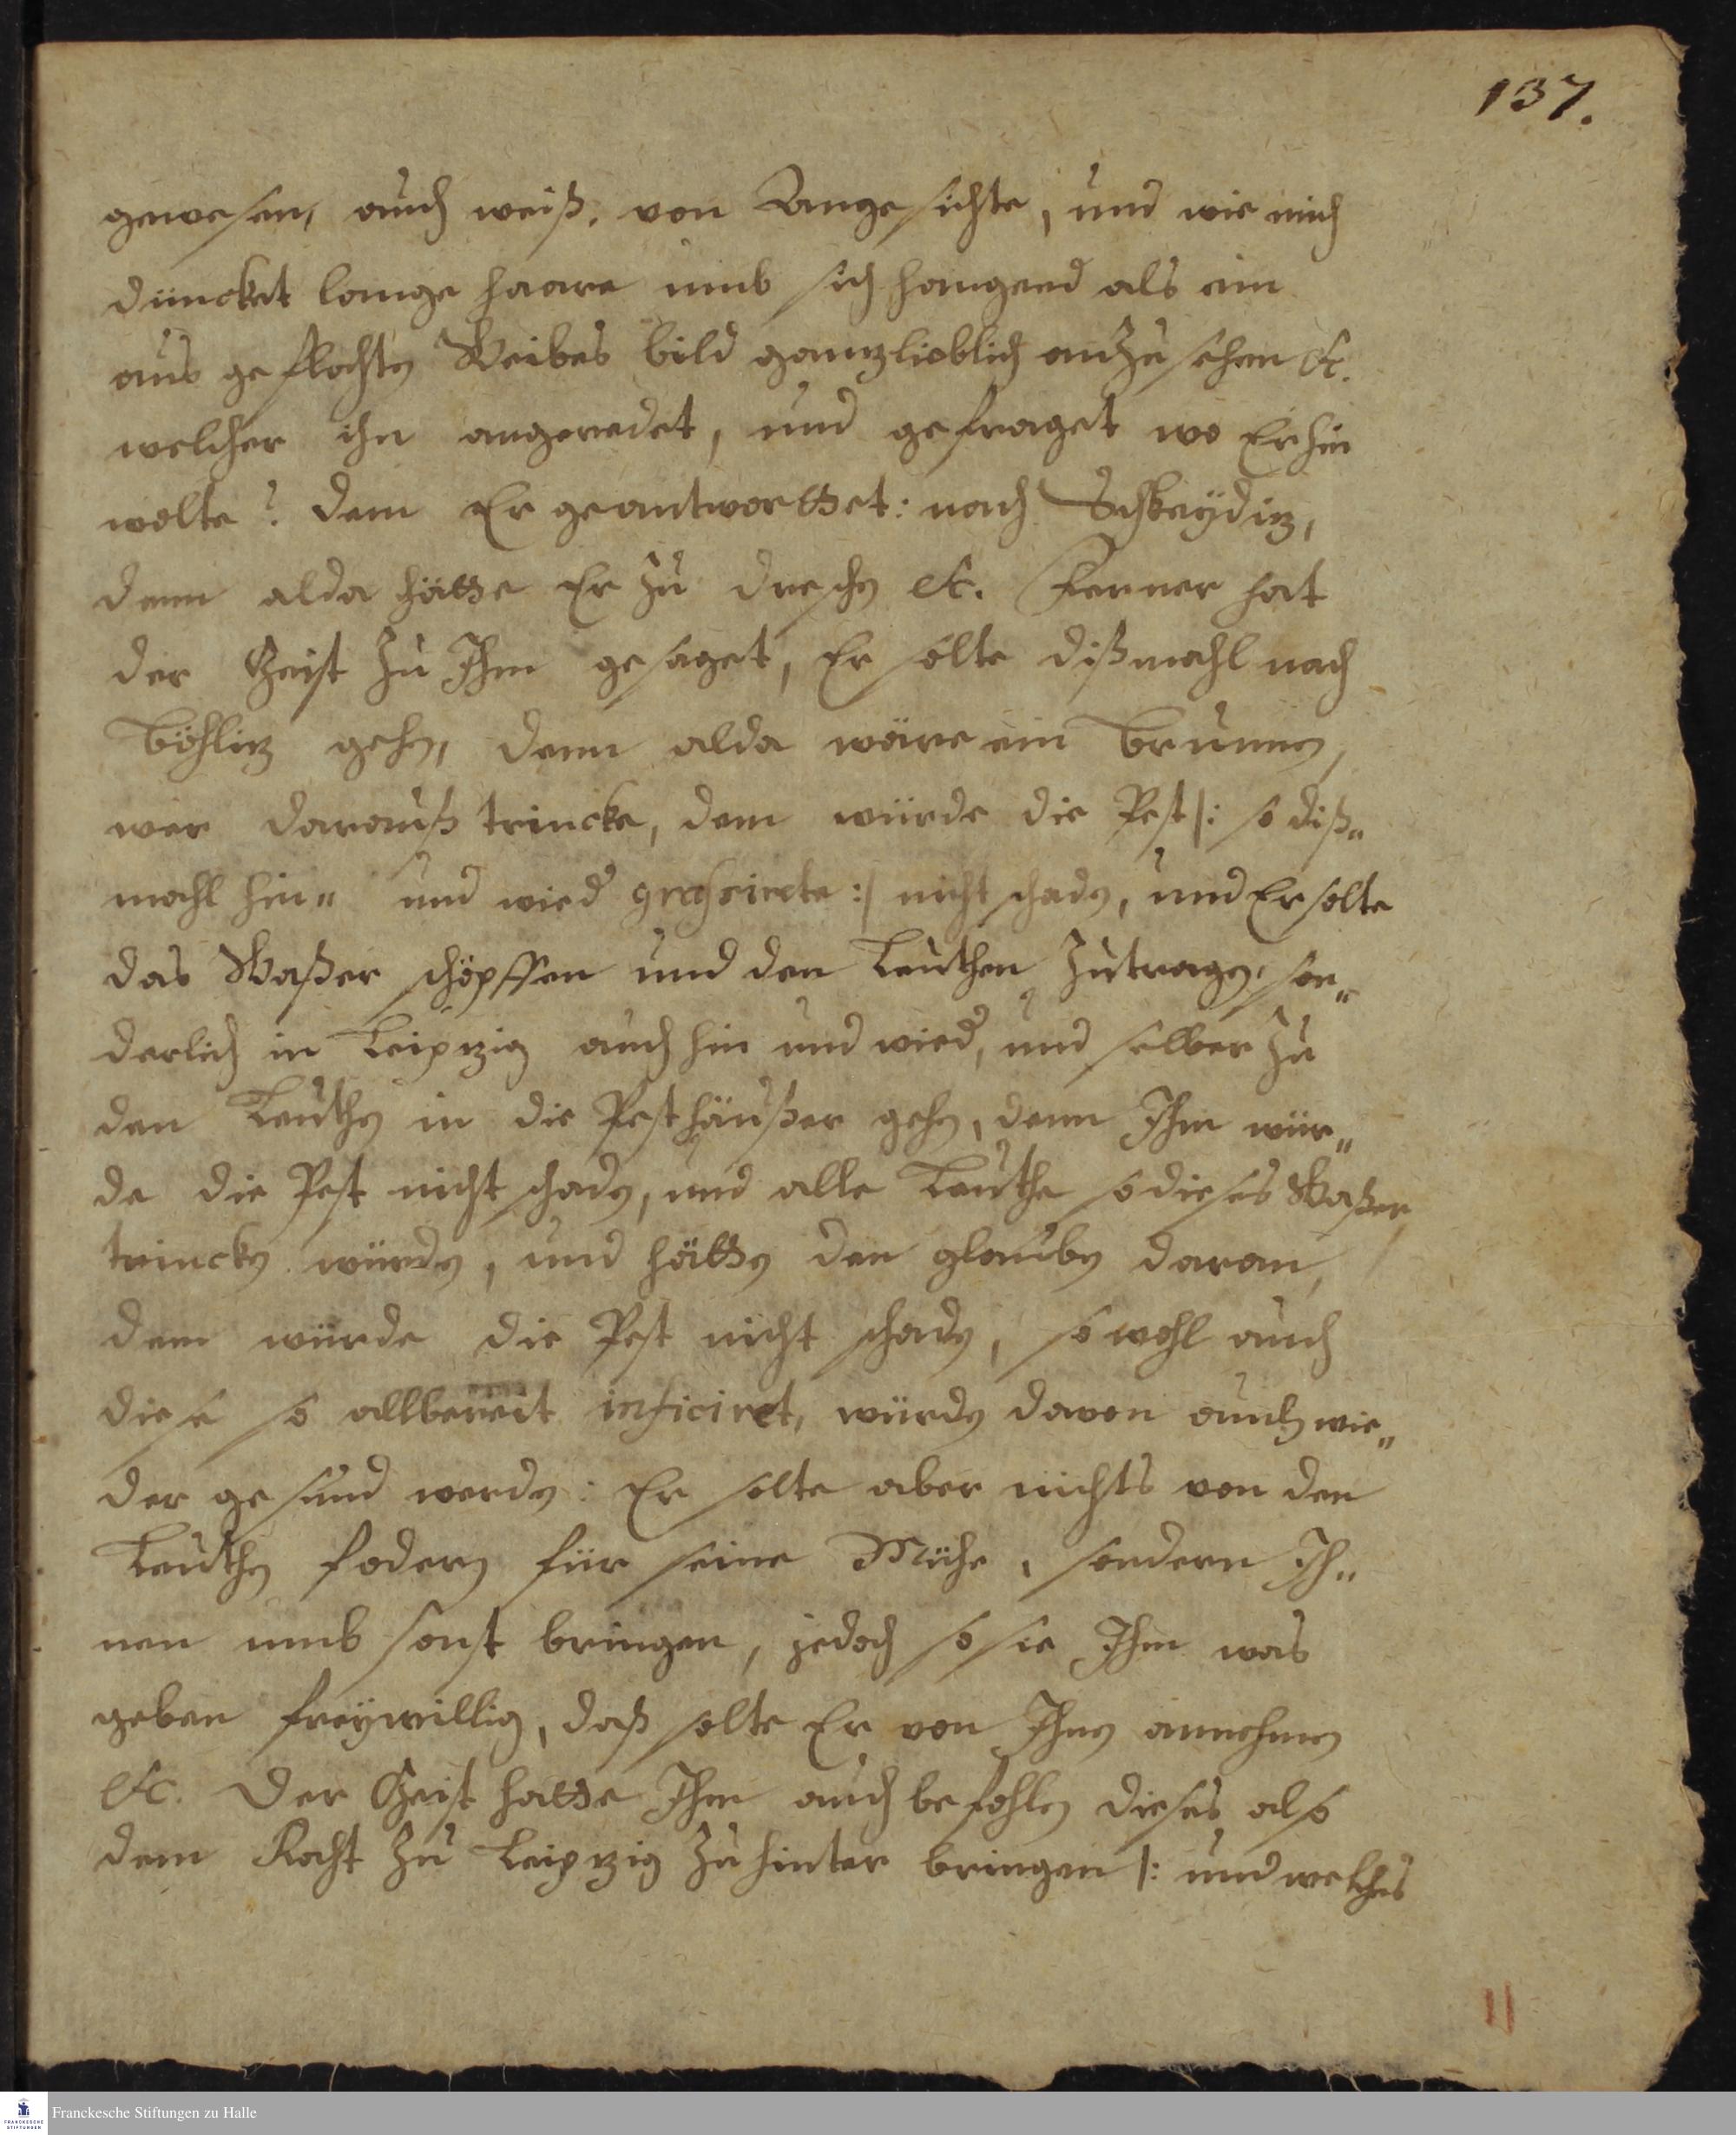 137.
gewesen, auch weiß von Angesichte, und wie mich
düncket lange haare umb sich hangend als ein
aus geflochten Weibes bild ganz lieblich anzusehen &c.
welcher ihn angeredet, und gefraget wo Er hin
wolte? dem Er geantworttet: nach Schkeyditz,
denn alda hätte Er zu dreschen &c. Ferner hat
der Geist zu Ihm gesaget, Er solte dißmahl nach
Böhlitz gehen, denn alda wäre ein Brunnen,
wer darauß trincke, dem würde die Pest |: so diß„
mahl hin„ und wieder grassirete :| nicht schaden, und Er solte
das Waßer schöpffen und den Leuthen zutragen, son„
derlich in Leipzig auch hin und wieder, und selber zu
den Leuthen in die Pesthäußer gehen, denn Ihm wür„
de die Pest nicht schaden, und alle Leuthe so dieses Waßer
trincken würden, und hätten den glauben daran,
dem würde die Pest nicht schaden, so wohl auch
diese so allbereit inficiret, würden davon auch wie„
der gesund werden: Er solte aber nichts von den
Leuthen fodern für seine Mühe, sondern Ih„
nen umb sonst bringen, jedoch so sie Ihm was
geben freywillig, daß solte Er von Ihnen annehmen
&c. Der Geist hatte Ihm auch befohlen dieses also
dem Raht zu Leipzig zu hinter bringen |: und welches
11
Franckesche Stiftungen zu Halle